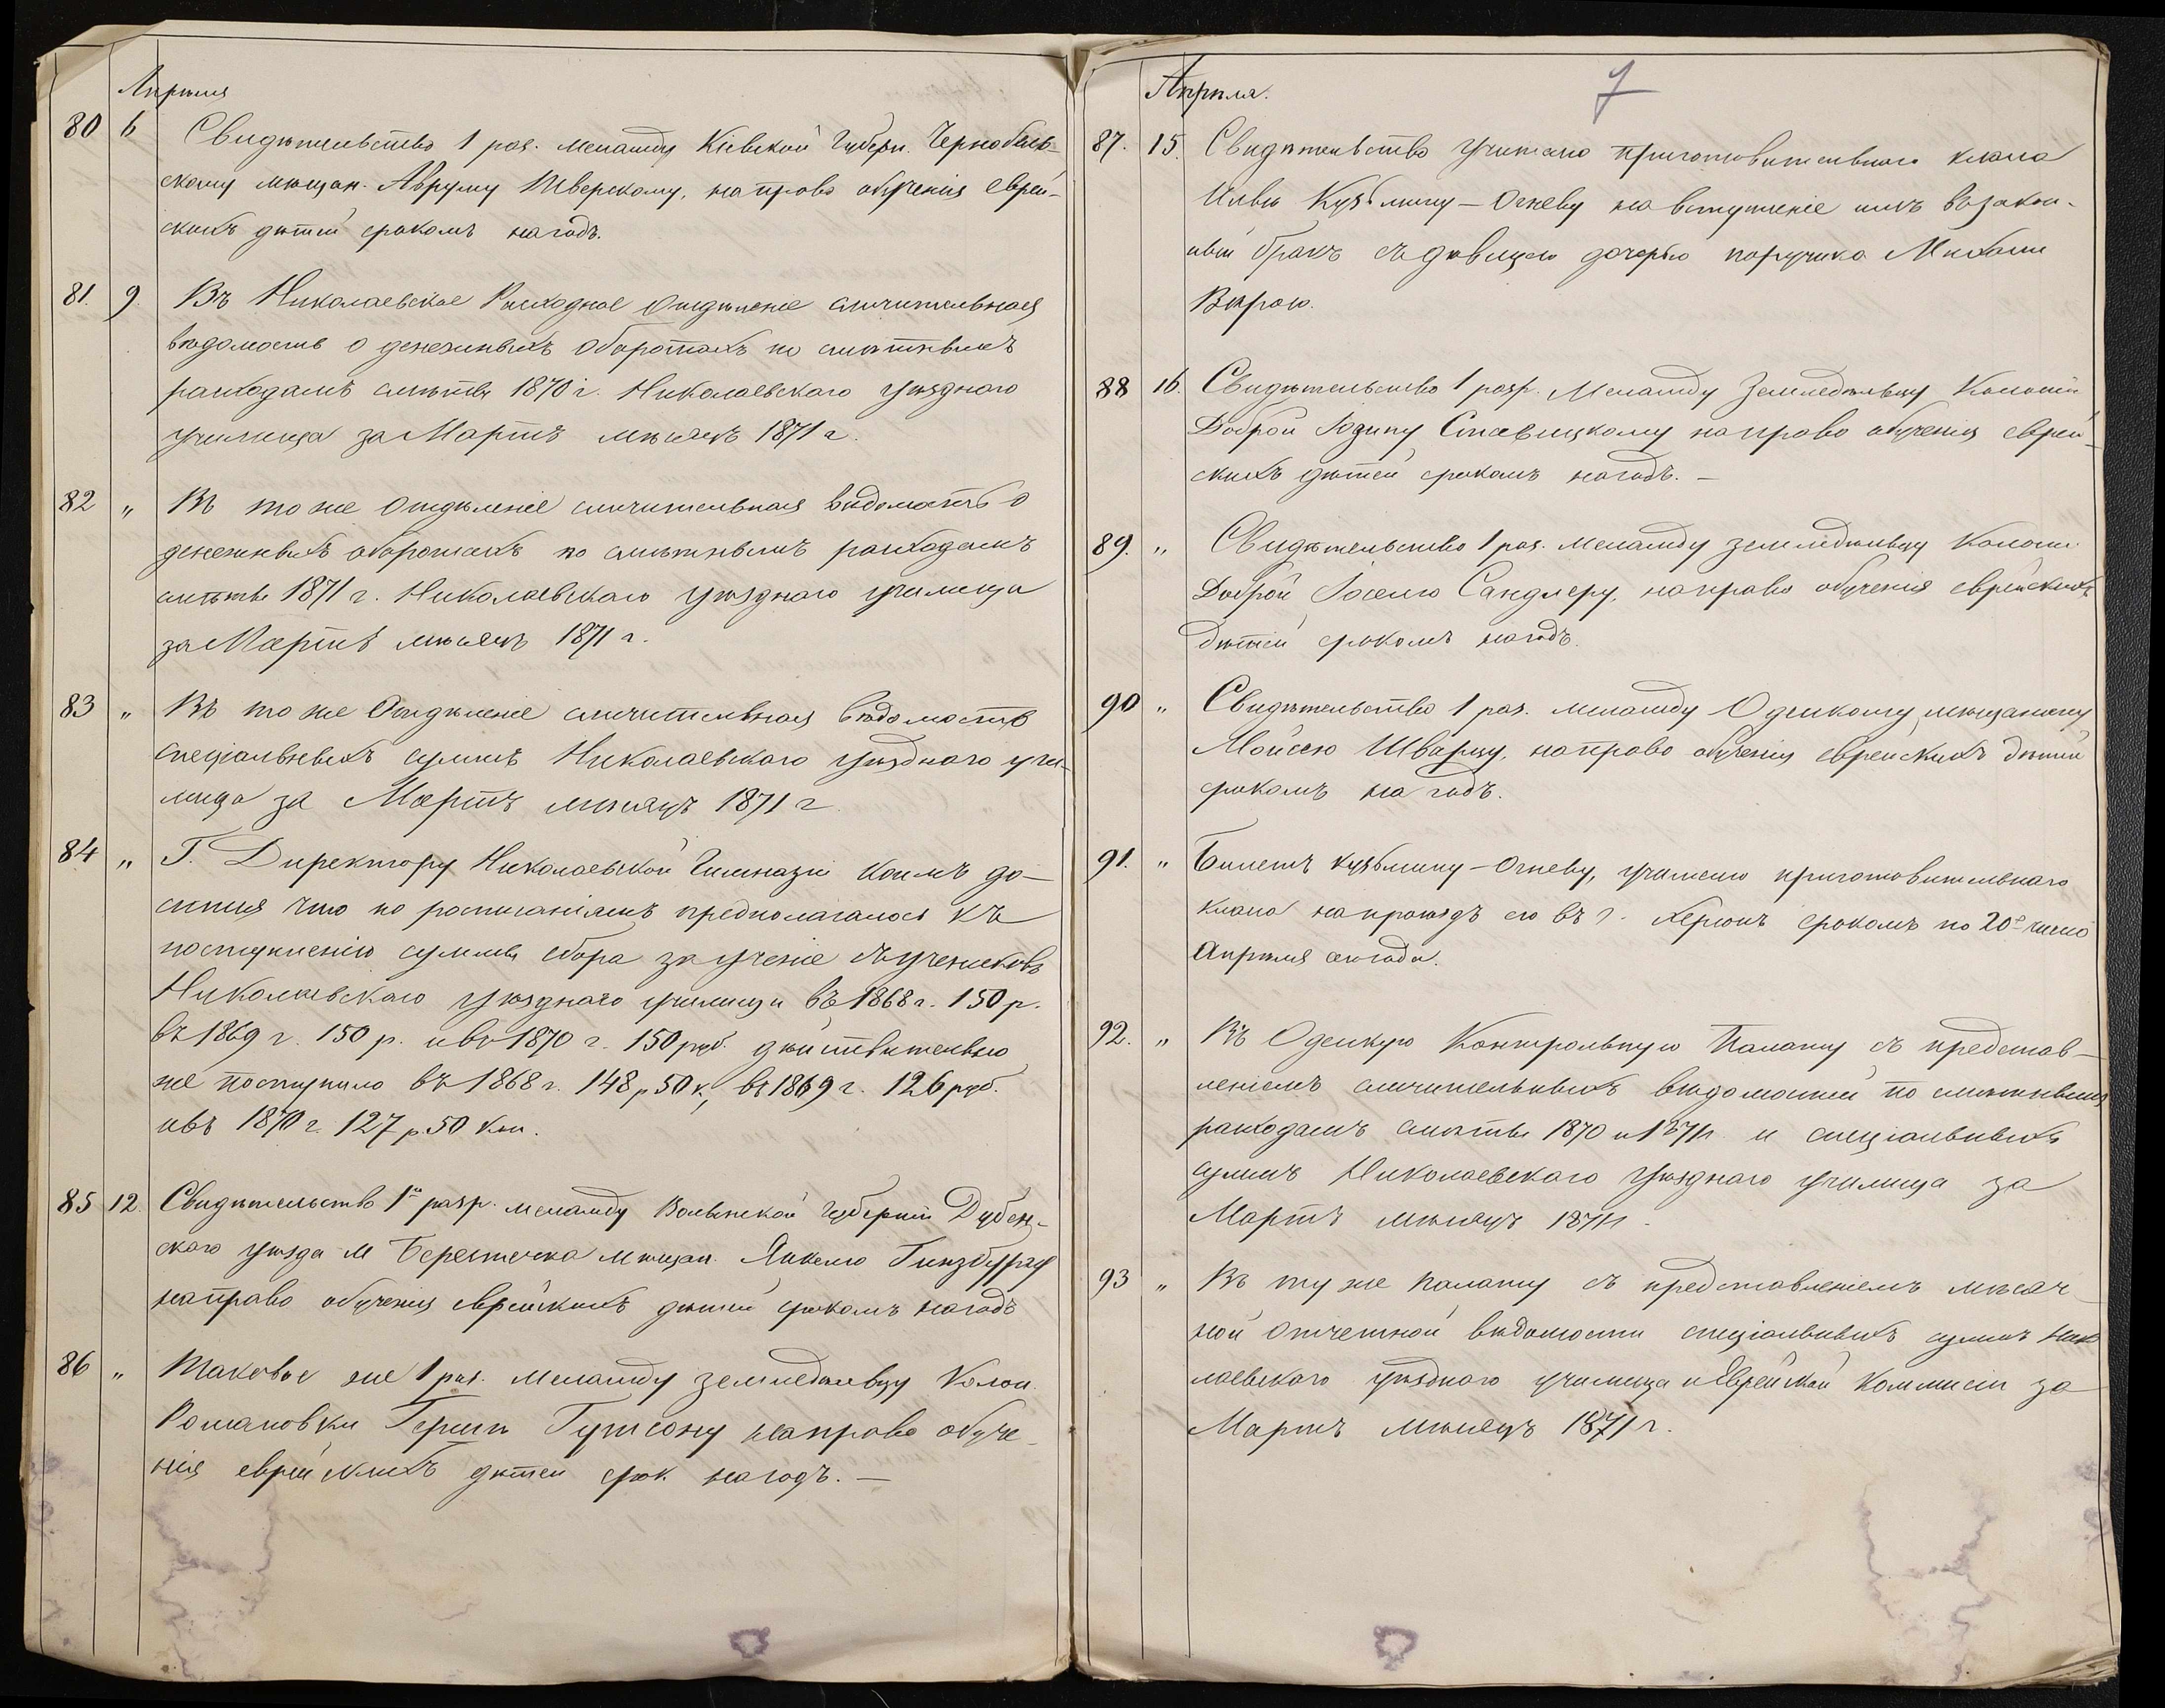 Апрѣля
80 6 Свидѣтельство 1 раз. меламду Кіевской Губерн. Чернобыль-
скому мѣщан. Абруму Тверскому, на право обученія еврей-
скихъ дѣтей срокомъ на годъ.
81. 9. Въ Николаевское Расходное Отдѣленіе сличительная
вѣдомость о денежныхъ оборотахъ по смѣтнымъ
расходамъ смѣты 1870 г. Николаевскаго уѣзднаго
училища за Мартъ мѣсяцъ 1871 г.
82 „ Въ то же Отдѣленіе сличительная вѣдомость о
денежныхъ оборотахъ по смѣтнымъ расходамъ
смѣты 1871 г. Николаевскаго уѣзднаго училища
за Мартъ мѣсяцъ 1871 г.
83 „ Въ то же Отдѣленіе сличительная вѣдомость
спеціальныхъ суммъ Николаевскаго уѣзднаго учи-
лища за Мартъ мѣсяцъ 1871 г.
84 „ Г. Директору Николаевской Гимназіи коимъ до-
что по росписаніямъ предполагалось къ
поступленію суммы сбора за ученіе съ учениковъ
Николаевскаго уѣзднаго училища въ 1868 г. 150 р.
въ 1869 г. 150 р. и въ 1870 г. 150 руб. дѣйствительно
же поступило въ 1868 г. 148 р. 50 к., въ 1869 г. 126 руб.
и въ 1870 г. 127 р. 50 коп.
85 12. Свидѣтельство 1го разр. меламду Волынской губерніи Дубен-
скаго уѣзда м Берестечка мѣщан. Янкелю Гинзбургу
на право обученія еврейскихъ дѣтей срокомъ на годъ
86 „ Таковое же 1 раз. меламду земледѣльцу Колон.
Романовки Гершѣ Гутсону на право обуче-
нія еврейскихъ дѣтей срок. на годъ. —
7
Апрѣля.
87. 15. Свидѣтельство учителю приготовительнаго класса
Ильѣ Кузьмину-Огневу на вступленіе имъ въ закон-
ный бракъ съ дѣвицею дочерью поручика
Вѣрою.
88 16. Свидѣтельство 1 разр. Меламду Земледѣльцу Колоніи
Доброй Іозипу Ставицкому на право обученія еврей-
скихъ дѣтей срокомъ на годъ. —
89. „ Свидѣтельство 1 раз. меламду земледѣльцу Колоні.
Доброй Іоселю Сандлеру, на право обученія еврейскихъ
дѣтей срокомъ на годъ.
90 „ Свидѣтельство 1 раз. меламду Одескому мѣщанину
Мойсею Шварцу, на право обученія еврейскихъ дѣтей
срокомъ на годъ.
91. „ Билетъ Кузьмину-Огневу, учителю приготовительнаго
класса на проѣздъ его въ г. Херсонъ срокомъ по 20е число
Апрѣля сего года.
92. „ Въ Одескую Контрольную Палату съ представ-
леніемъ сличительныхъ вѣдомостей по смѣтнымъ
расходамъ смѣты 1870 и 1871 г. и спеціальныхъ
суммъ Николаевскаго уѣзднаго училища за
Мартъ мѣсяцъ 1871 г.
93 „ Въ ту же палату съ представленіемъ мѣсяч-
ной отчетной вѣдомости спеціальныхъ суммъ Нико
лаевскаго уѣзднаго училища и Еврейской коммисіи за
Мартъ мѣсяцъ 1871 г.